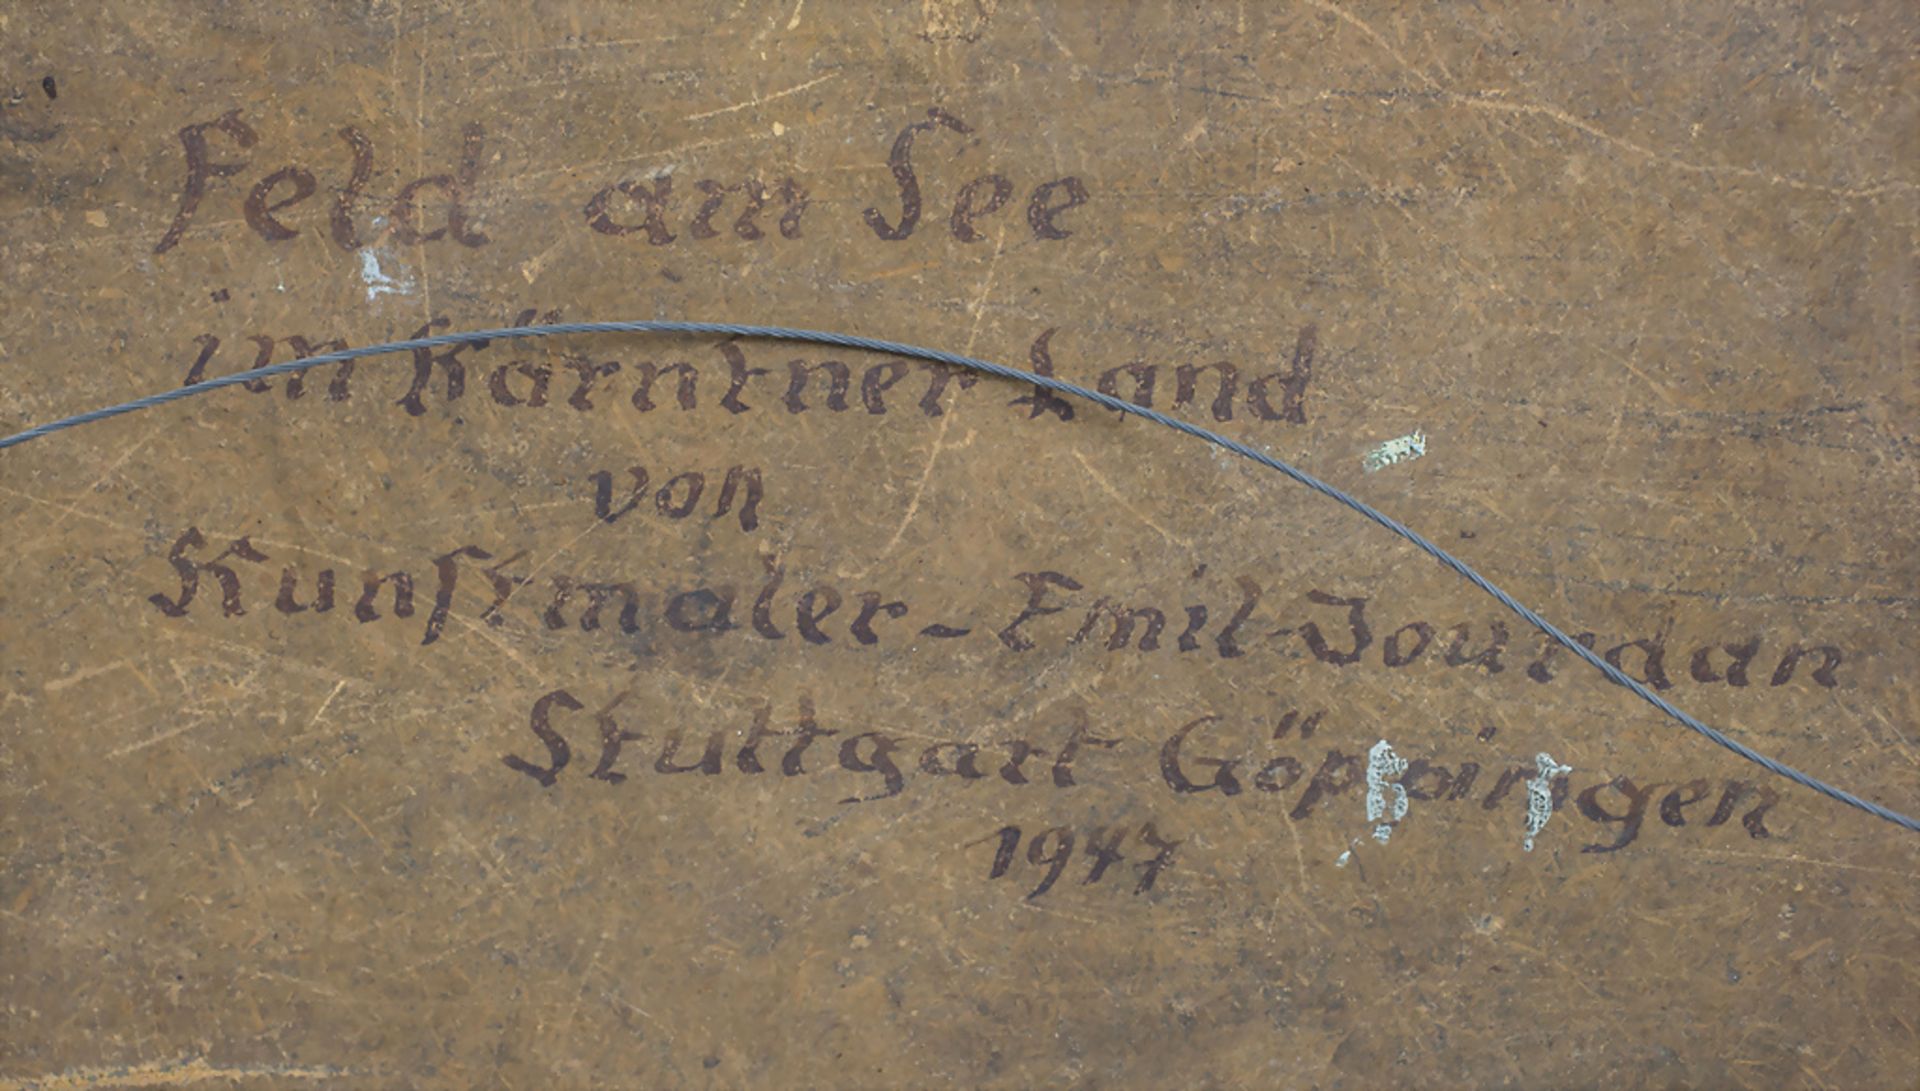 Feld am See
im Kärntner Land
von
Kunstmaler - Emil Jourdan
Stuttgart Göppingen
1947